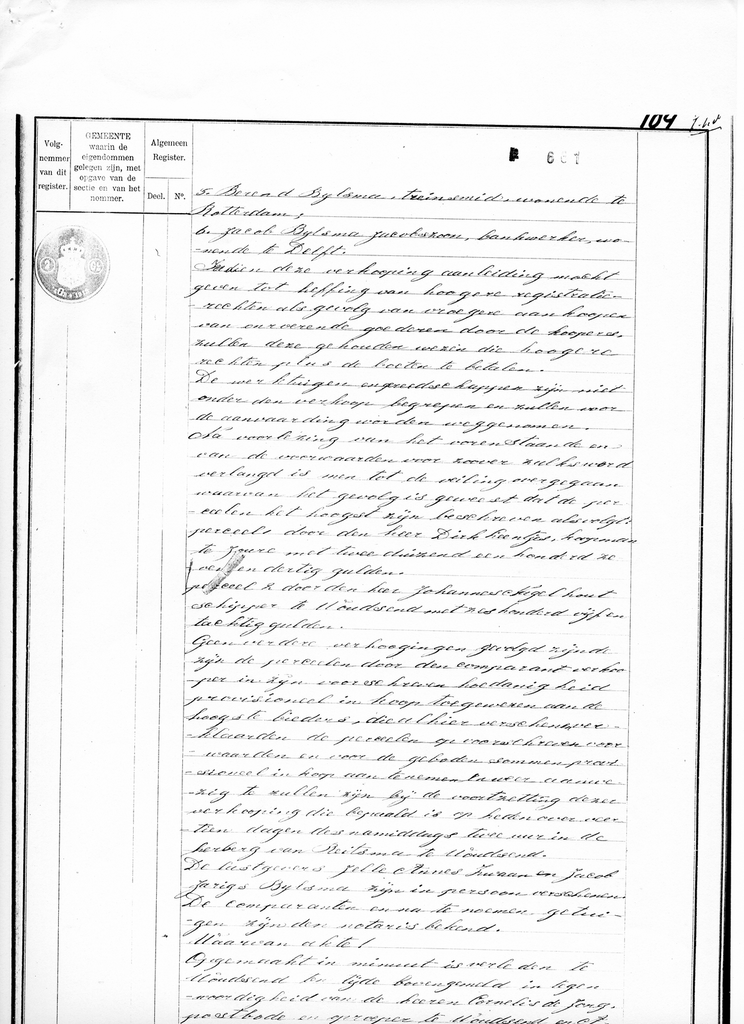 104
Volg-
nommer
van dit
register.
GEMEENTE
waarin de
eigendommen
gelegen zijn, met
opgave van de
sectie en van het
nommer.
Algemeen
Register.
Deel. No.
5. Berend Bylsma, treinsmid, wonende te
Rotterdam;
6. Jacob Bylsma Jacobszoon, bankwerker, wo-
nende te Delft.
Indien deze verkooping aanleiding mocht
geven tot heffing van hoogere registratie-
-rechten als gevolg van vroegere aankoopen
van onroerende goederen door de koopers,
zullen deze gehouden wezen die hoogere
rechten plus de boeten te betalen.
De werktuigen en gereedschappen zijn niet
onder den verkoop begrepen en zullen voor
de aanvaarding worden weggenomen.
Na voorlezing van het vorenstaande en
van de voorwaarden voor zoover zulks werd
verlangd is men tot de veiling overgegaan
waarvan het gevolg is geweest dat de per-
-ceelen het hoogst zijn beschreven als volgt:
perceel 1 door den heer Dirk Kuntje, koopman
te Joure met twee duizend een honderd ze-
ven en dertig gulden.
perceel 2 door den heer Johannes Nagel hout
schipper te Woudsend met zes honderd vijf en
tachtig gulden.
Geen verdere verhoogingen gevolgd zijnde
zijn de perceelen door den comparant verkoo-
per in zijn voorschreven hoedanigheid
provisioneel in koop toegewezen aan de
hoogste bieders, die alhier verschenen, ver-
-klaarden de perceelen op voorschreven voor-
-waarden en voor de geboden sommen provi-
-sioneel in koop aan te nemen en weer aanwe-
-zig te zullen zijn bij de voortzetting dezer
verkooping die bepaald is op heden over veer-
-tien dagen des namiddags twee uur in de
herberg van Reitsma te Woudsend.
De lastgevers Jelle Annes Zwaan en Jacob
Jarigs Bylsma zijn in persoon verschenen.
De comparanten en na te noemen getui-
-gen zijn den notaris bekend.
Waarvan akte!
Opgemaakt in minuut is verleden te
Woudsend ten tijde bovengemeld in tegen
-woordigheid van de heeren Cornelis de Jong,
postbode en omroeper te Woudsend en